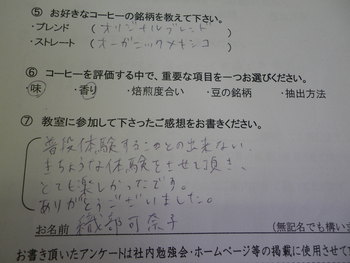 ⑤ お好きなコーヒーの銘柄を教えて下さい。
・ブレンド (オリジナルブレンド)
・ストレート (オーガニックメキシコ)
⑥ コーヒーを評価する中で、重要な項目を一つお選びください。
・味 ・香り ・焙煎度合い ・豆の銘柄 ・抽出方法
⑦ 教室に参加して下さったご感想をお書きください。
普段体験することの出来ない
きちょうな体験をさせて頂き、
とても楽しかったです。
ありがとうございました。
お名前 織部可奈子 (無記名でも構い
お書き頂いたアンケートは社内勉強会・ホームページ等の掲載に使用させて